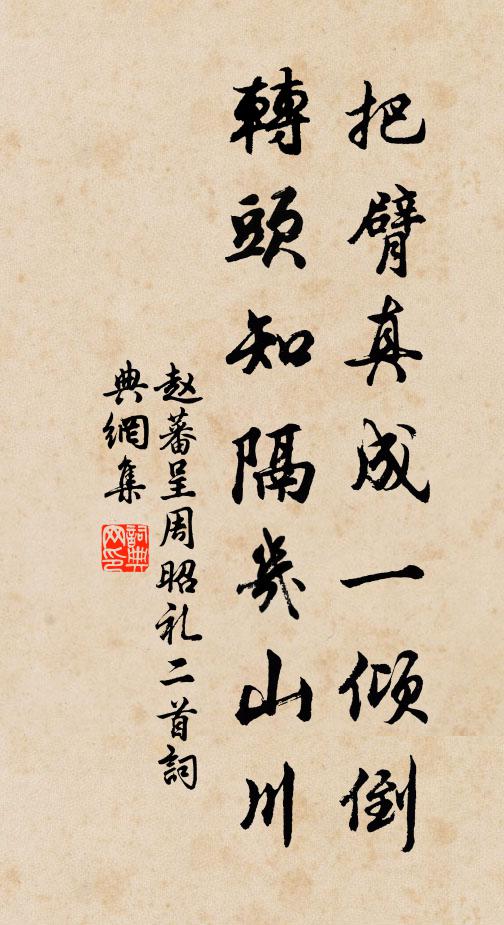 把臂真成一倾倒
轉頭知隔幾山川
赵蕃呈周昭礼二首詞
典網集
詞典
网印